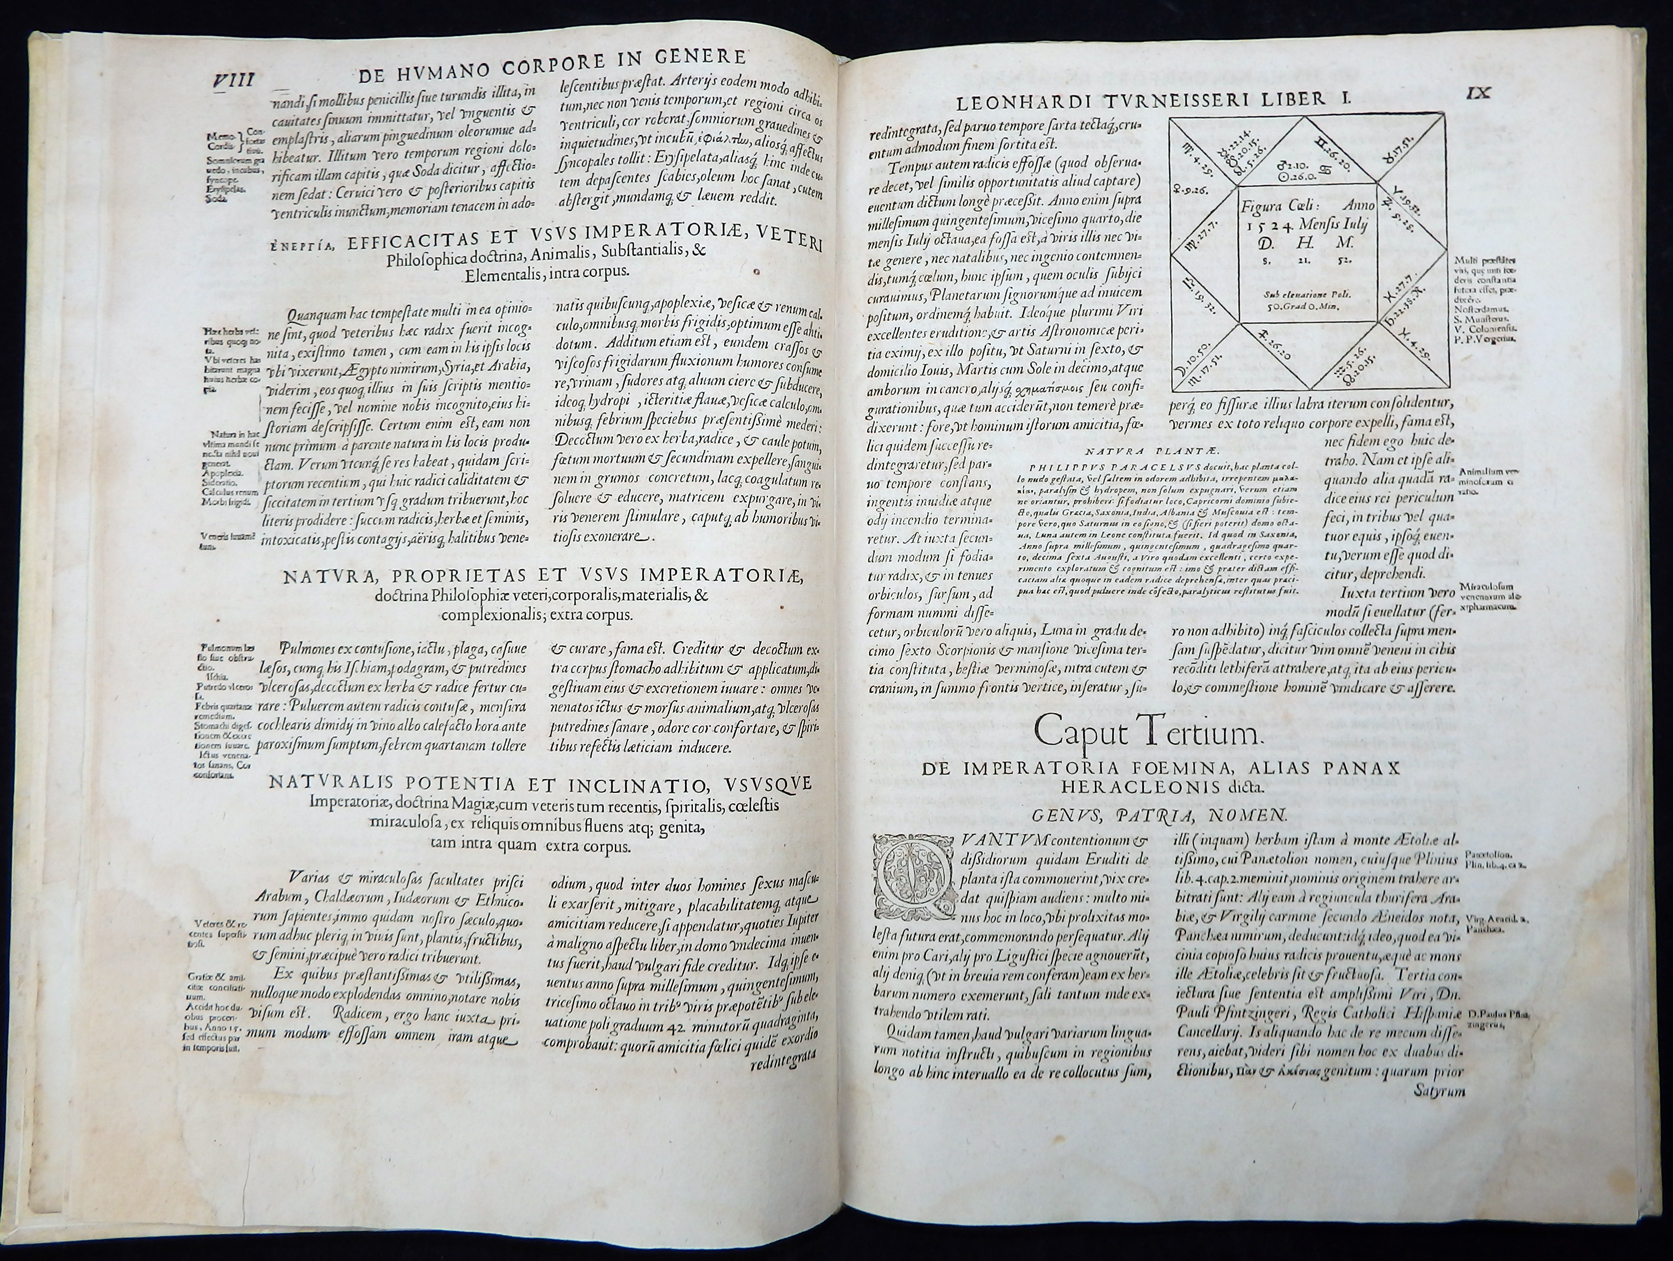 VIII
DE HVMANO CORPORE IN GENERE
nandi, si mollibus penicillis siue turundis illita, in
cauitates sinuum immittatur, vel vnguentis &
emplastris, aliarum pinguedinum oleorumue ad-
hibeatur. Illitum vero temporum regioni dolo-
rificam illam capitis, quæ Soda dicitur, affectio-
nem sedat: Ceruici vero & posterioribus capitis
ventriculis inunctum, memoriam tenacem in ado-
lescentibus præstat. Arterijs eodem modo adhibi-
tum, nec non venis temporum, et regioni circa os
ventriculi, cor roborat: somniorum grauedines &
inquietudines, vt incubū, aliosq́ affectus
syncopales tollit: Erysipelata, aliasq́ hinc inde cu-
tem depascentes scabies, oleum hoc sanat, cutem
abstergit, mundamq́ & læuem reddit.
Erysipelas.
Soda.
ἐνεργία, EFFICACITAS ET VSVS IMPERATORIÆ, VETERI
Philosophica doctrina, Animalis, Substantialis, &
Elementalis, intra corpus.
Quanquam hac tempestate multi in ea opinio-
ne sint, quod veteribus hæc radix fuerit incog-
nita, existimo tamen, cum eam in his ipsis locis
vbi vixerunt, Ægypto nimirum, Syria, et Arabia,
viderim, eos quoq́ illius in suis scriptis mentio-
nem fecisse, vel nomine nobis incognito, eius hi-
storiam descripsisse. Certum enim est, eam non
nunc primum à parente natura in his locis produ-
ctam. Verum vtcunq́ se res habeat, quidam scri-
ptorum recentium, qui huic radici caliditatem &
siccitatem in tertium vsq́ gradum tribuerunt, hoc
literis prodidere: succum radicis, herbæ et seminis,
intoxicatis, pestis contagijs, aërisq́ halitibus vene-
natis quibuscunq́, apoplexiæ, vesicæ & renum cal-
culo, omnibusq́ morbis frigidis, optimum esse anti-
dotum. Additum etiam est, eundem crassos &
viscosos frigidarum fluxionum humores consume
re, vrinam, sudores atq́ aluum ciere & subducere,
ideoq́ hydropi, icteritiæ flauæ, vesicæ calculo, om-
nibusq́ febrium speciebus præsentissimè mederi:
Decoctum vero ex herba, radice, & caule potum,
fœtum mortuum & secundinam expellere, sangui-
nem in grumos concretum, lacq́ coagulatum re-
soluere & educere, matricem expurgare, in vi-
ris venerem stimulare, caputq́ ab humoribus vi-
tiosis exonerare.
Hæc herba vete-
ribus quoq́ no-
ta.
Apoplexia.
Sideratio.
Calculus renum
Morbi frigidi.
NATVRA, PROPRIETAS ET VSVS IMPERATORIÆ,
doctrina Philosophiæ veteri, corporalis, materialis, &
complexionalis; extra corpus.
Pulmones ex contusione, ictu, plaga, casuue
læsos, cumq́ his Ischiam, podagram, & putredines
vlcerosas, decoctum ex herba & radice fertur cu-
rare: Puluerem autem radicis contusæ, mensura
cochlearis dimidij in vino albo calefacto hora ante
paroxismum sumptum, febrem quartanam tollere
& curare, fama est. Creditur & decoctum ex-
tra corpus stomacho adhibitum & applicatum, di-
gestiuam eius & excretionem iuuare: omnes ve-
nenatos ictus & morsus animalium, atq́ vlcerosas
putredines sanare, odore cor confortare, & spiri-
tibus refectis læticiam inducere.
Ischia.
Putredo vlceros
sa.
Febris quartanæ
remedium.
NATVRALIS POTENTIA ET INCLINATIO, VSVSQVE
Imperatoriæ, doctrina Magiæ, cum veteris tum recentis, spiritalis, cœlestis
miraculosa, ex reliquis omnibus fluens atq; genita,
tam intra quam extra corpus.
Varias & miraculosas facultates prisci
Arabum, Chaldæorum, Iudæorum & Ethnico-
rum sapientes, immo quidam nostro sæculo, quo-
rum adhuc pleriq́ in viuis sunt, plantis, fructibus,
& semini, præcipuè vero radici tribuerunt.
Ex quibus præstantissimas & vtilissimas,
nulloque modo explodendas omnino, notare nobis
visum est. Radicem, ergo hanc iuxta pri-
mum modum effossam omnem iram atque
odium, quod inter duos homines sexus mascu-
li exarserit, mitigare, placabilitatemq́, atque
amicitiam reducere, si appendatur, quoties Iupiter
à maligno aspectu liber, in domo vndecima inuen-
tus fuerit, haud vulgari fide creditur. Idq́ ipse e-
uentus anno supra millesimum, quingentesimum,
tricesimo octauo in tribꝰ viris præpotētibꝰ sub ele-
uatione poli graduum 42 minutorū quadraginta,
comprobauit: quorū amicitia fœlici quidē exordio
redintegrata
IX
LEONHARDI TVRNEISSERI LIBER I.
redintegrata, sed paruo tempore sarta tectaq́, cru-
entum admodum finem sortita est.
Tempus autem radicis effossæ (quod obserua-
re decet, vel similis opportunitatis aliud captare)
euentum dictum longè præcessit. Anno enim supra
millesimum quingentesimum, vicesimo quarto, die
mensis Iulij octaua, ea fossa est, à viris illis nec vi-
tæ genere, nec natalibus, nec ingenio contemnen-
dis, tumq́ cœlum, hunc ipsum, quem oculis subijci
curauimus, Planetarum signorumque ad inuicem
positum, ordinemq́ habuit. Ideoque plurimi Viri
excellentes eruditione, & artis Astronomicæ peri-
tia eximij, ex illo positu, vt Saturni in sexto, &
domicilio Iouis, Martis cum Sole in decimo, atque
amborum in cancro, alijsq́ χρηματισμοῖς seu confi-
gurationibus, quæ tum acciderūt, non temerè præ-
dixerunt: fore, vt hominum istorum amicitia, fœ-
lici quidem successu re-
dintegraretur, sed par-
uo tempore constans,
ingentis inuidiæ atque
odij incendio termina-
retur. At iuxta secun-
dum modum si fodia-
tur radix, & in tenues
orbiculos, sursum, ad
formam nummi disse-
cetur, orbiculorū vero aliquis, Luna in gradu de-
cimo sexto Scorpionis & mansione vicesima ter-
tia constituta, bestiæ verminosæ, intra cutem &
cranium, in summo frontis vertice, inseratur, su-
Figura Cœli: Anno
1524 Mensis Iulij
D. H. M.
8. 21. 52.
Sub eleuatione Poli.
50. Grad 0. Min.
Multi præstātes
S. Munsterus.
V. Coloniensis.
P. P. Vergerius.
NATVRA PLANTÆ.
PHILIPPVS PARACELSVS docuit, hac planta col-
lo nudo gestata, vel saltem in odorem adhibita, irrepentem
paralysin & hydropem, non solum expugnari, verum etiam
ne oriantur, prohiberi: si fodiatur loco, Capricorni dominio subie-
cto, qualis Græcia, Saxonia, India, Albania & Musconia est: tem-
pore vero, quo Saturnus in eo signo, & (si fieri poterit) domo octa-
ua, Luna autem in Leone constituta fuerit. Id quod in Saxonia,
Anno supra millesimum, quingentesimum, quadragesimo quar-
to, decima sexta Augusti, à viro quodam excellenti, certo expe-
rimento exploratum & cognitum est: imo & præter dictam effi-
caciam alia quoque in eadem radice deprehensa, inter quas præci-
pua hæc est, quod puluere inde cōfecto, paralyticus restitutus fuit.
perq́ eo fissuræ illius labra iterum consolidentur,
vermes ex toto reliquo corpore expelli, fama est,
nec fidem ego huic de-
traho. Nam et ipse ali-
quando alia quadā ra-
dice eius rei periculum
feci, in tribus vel qua-
tuor equis, ipsoq́ euen-
tu, verum esse quod di-
citur, deprehendi.
Iuxta tertium vero
modū si euellatur (fer-
ro non adhibito) inq́ fasciculos collecta supra men-
sam suspēdatur, dicitur vim omnē veneni in cibis
recōditi lethiferā attrahere, atq́ ita ab eius pericu-
lo, & commestione hominē vindicare & asserere.
Caput Tertium.
DE IMPERATORIA FOEMINA, ALIAS PANAX
HERACLEONIS dicta.
GENVS, PATRIA, NOMEN.
QVANTVM contentionum &
dissidiorum quidam Eruditi de
planta ista commouerint, vix cre-
dat quispiam audiens: multo mi-
nus hoc in loco, vbi prolixitas mo-
lesta futura erat, commemorando persequatur. Alij
enim pro Cari, alij pro Ligustici specie agnouerūt,
alij deniq́ (vt in breuia rem conferam) eam ex her-
barum numero exemerunt, sali tantum inde ex-
trahendo vtilem rati.
Quidam tamen, haud vulgari variarum lingua-
rum notitia instructi, quibuscum in regionibus
longo ab hinc interuallo ea de re collocutus sum,
illi (inquam) herbam istam à monte Ætoliæ al-
tissimo, cui Panætolion nomen, cuiusque Plinius
lib. 4. cap. 2. meminit, nominis originem trahere ar-
bitrati sunt: Alij eam à regiuncula thurifera Ara-
biæ, & Virgilij carmine secundo Æneidos nota,
Panchæa nimirum, deducunt: idq́ ideo, quod ea vi-
cinia copioso huius radicis prouentu, æquè ac mons
ille Ætoliæ, celebris sit & fructuosa. Tertia con-
iectura siue sententia est amplissimi Viri, Dn.
Pauli Pfintzingeri, Regis Catholici Hispaniæ
Cancellarij. Is aliquando hac de re mecum disse-
rens, aiebat, videri sibi nomen hoc ex duabus di-
ctionibus, πᾶν & ἀκέσιας genitum: quarum prior
Panætolion.
Plin. lib. 4. ca 2.
Virg. Aeneid. 2.
Panchæa.
D. Paulus Pfin-
zingerus.
Satyrum